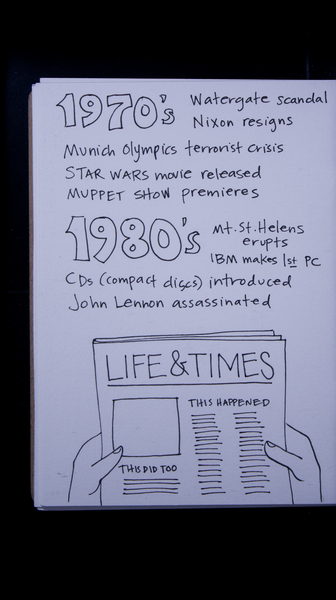 1970's
Watergate scandal
Nixon resigns
Munich Olympics terrorist crisis
STAR WARS movie released
MUPPET SHOW premieres
1980's
Mt. St. Helens
erupts
IBM makes 1st PC
CDs (compact discs) introduced
John Lennon assassinated
LIFE & TIMES
THIS HAPPENED
THIS DID TOO